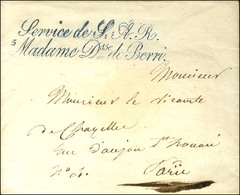 Service de S. A. R.
Madame D.sse de Berri.
Monsieur
Monsieur le vicomte
de
rue d'anjou St honoré
N°
Paris